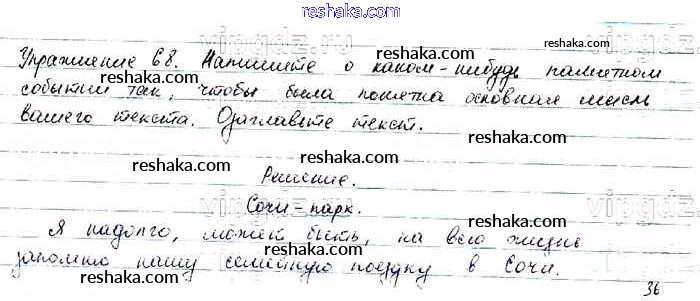 reshaka.com
Упражнение 68. Напишите о каком-нибудь памятном
reshaka.com reshaka.com
событии так, чтобы была понятна основная мысль
вашего текста. Озаглавьте текст.
reshaka.com reshaka.com
Решение.
reshaka.com
Сочи-парк.
reshaka.com reshaka.com
Я надолго, может быть, на всю жизнь
запомню нашу семейную поездку в Сочи.
reshaka.com reshaka.com
36